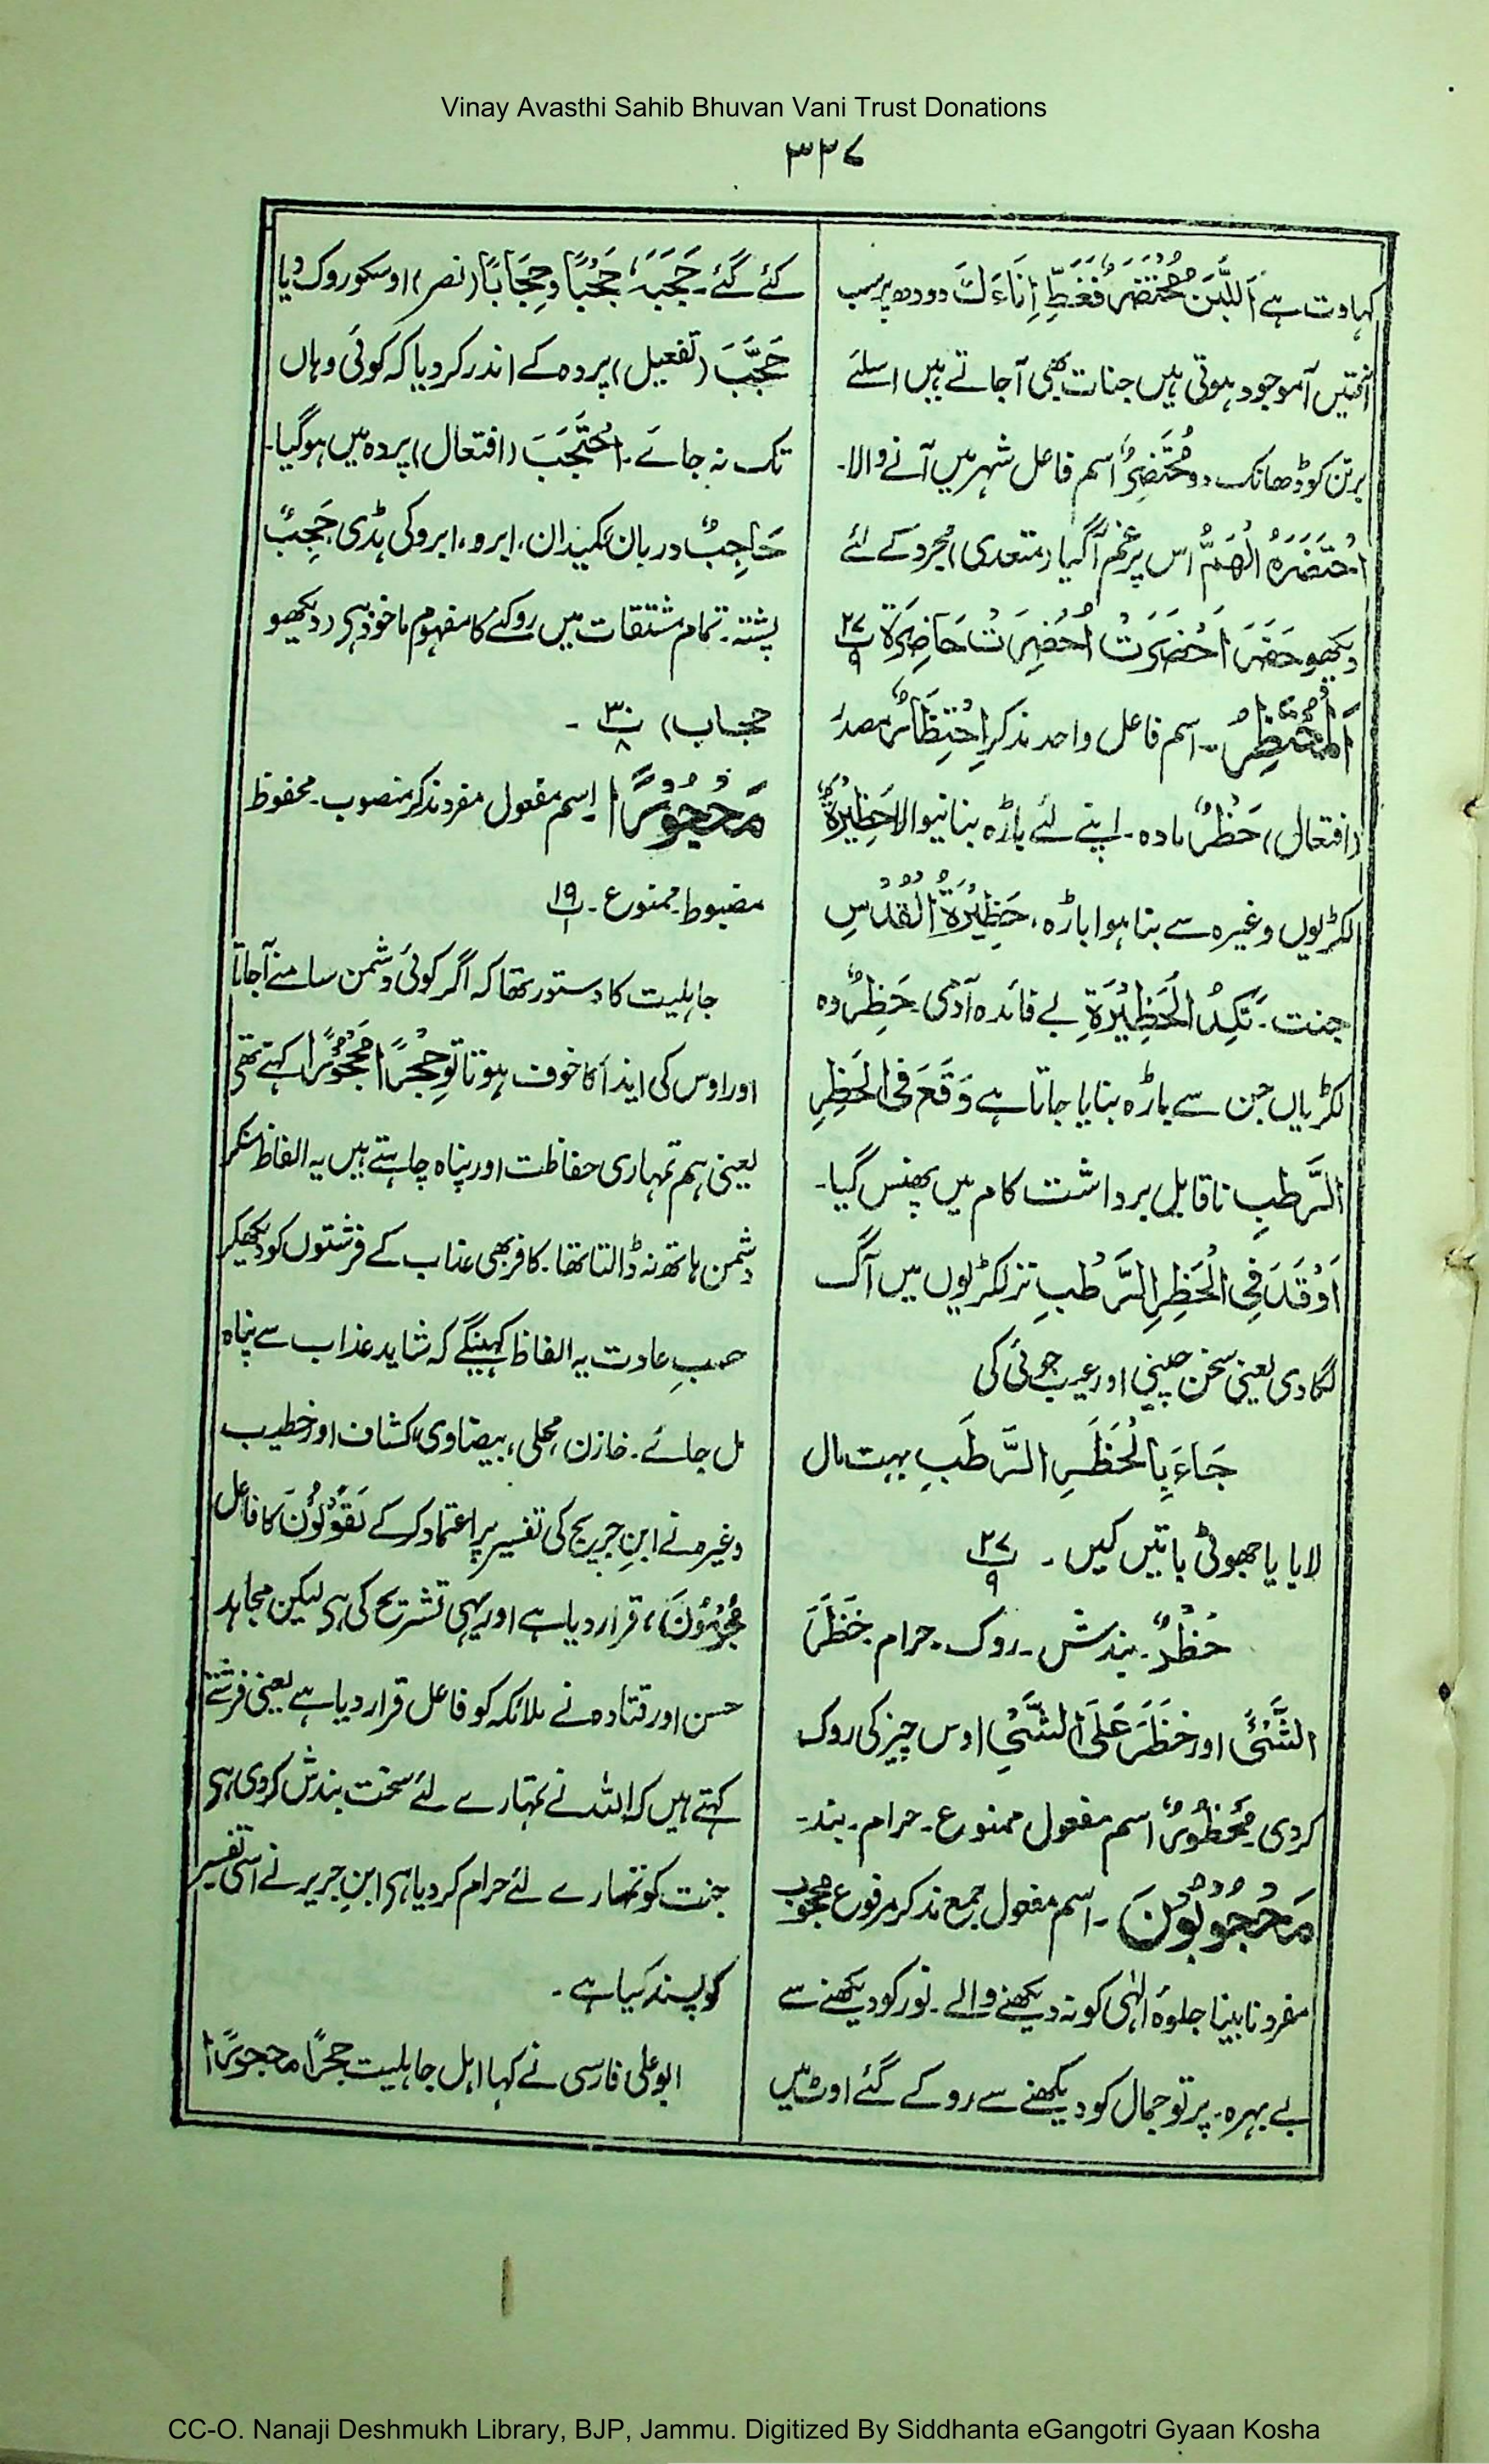 Vinay Avasthi Sahib Bhuvan Vani Trust Donations
۳۳۷
کہاوت ہے اَللَّبَنُ مُحْتَضَرٌ فَغَطِّ اِنَاءَكَ دودھ پر سب
آفتیں آموجود ہوتی ہیں جنات بھی آجاتے ہیں اسلئے
برتن کو ڈھانک دو مُحْتَضِرٌ اسم فاعل شہر میں آنے والا۔
اِحْتَضَرَهُ الْهَمُّ اس پر غم آگیا (متعدی) مجرد کے لئے
دیکھو حَضَرَ اَحْضَرَتْ اُحْضِرَتْ حَاضِرَةً پ۲۷ ۹
اَلْمُحْتَظِرُ۔ اسم فاعل واحد مذکر اِحْتِظَارٌ مصدر
(افتعال) حَظْرٌ مادہ۔ اپنے لئے باڑہ بنانیوالا حَظِيْرَةٌ
لکڑیوں وغیرہ سے بنا ہوا باڑہ، حَظِيْرَةُ الْقُدُسِ
جنت۔ نَكِدُ الْحَظِيْرَةِ بے فائدہ آدمی۔ حَظِرٌ وہ
لکڑیاں جن سے باڑہ بنایا جاتا ہے وَقَعَ فِی الْحَظِرِ
الرَّطْبِ ناقابل برداشت کام میں پھنس گیا۔
اَوْقَدَ فِی الْحَظِرِ الرَّطْبِ تر لکڑیوں میں آگ
لگادی یعنی سخن چینی اور عیب جوئی کی
جَاءَ بِالْحَظَرِ الرَّطَبِ بہت مال
لایا یا جھوٹی باتیں کیں۔ پ۲۷ ۹
حَظْرٌ۔ بندش۔ روک۔ حرام۔ حَظَرَ
الشَّیْئَ اور حَظَرَ عَلَی الشَّیْئِ اوس چیز کی روک
کردی۔ مَحْظُوْرٌ اسم مفعول ممنوع۔ حرام۔ بند۔
مَحْجُوْبُوْنَ۔ اسم مفعول جمع مذکر مرفوع محجوب
مفرد نابینا جلوۂ الٰہی کو نہ دیکھنے والے۔ نور کو دیکھنے سے
بے بہرہ۔ پرتو جمال کو دیکھنے سے روکے گئے اوٹ میں
کئے گئے۔ حَجَبَهٗ حَجْبًا وَحِجَابًا (نصر) اوسکو روک دیا
حَجَّبَ (تفعیل) پردہ کے اندر کردیا کہ کوئی وہاں
تک نہ جائے۔ اِحْتَجَبَ (افتعال) پردہ میں ہوگیا۔
حَاجِبٌ دربان، کمیدان، ابرو، ابرو کی ہڈی حَجِبٌ
پشتہ۔ تمام مشتقات میں روکنے کا مفہوم ماخوذ ہی (دیکھو
حجاب) پ۳۰ ۸ ۔
مَحْجُوْرًا اسم مفعول مفرد مذکر منصوب۔ محفوظ
مضبوط۔ ممنوع۔ پ۱۹ ۱
جاہلیت کا دستور تھا کہ اگر کوئی دشمن سامنے آجاتا
اور اوس کی ایذا کا خوف ہوتا تو حِجْرًا مَحْجُوْرًا کہتے تھی
یعنی ہم تمہاری حفاظت اور پناہ چاہتے ہیں یہ الفاظ سنکر
دشمن ہاتھ نہ ڈالتا تھا۔ کافر بھی عذاب کے فرشتوں کو دیکھکر
حسبِ عادت یہ الفاظ کہینگے کہ شاید عذاب سے پناہ
مل جائے۔ خازن، محلی، بیضاوی، کشاف اور خطیب
وغیرہ نے ابنِ جریج کی تفسیر پر اعتماد کرکے یَقُوْلُوْنَ کا فاعل
مُجْرِمُوْنَ، قرار دیا ہے اور یہی تشریح کی ہی لیکن مجاہد
حسن اور قتادہ نے ملائکہ کو فاعل قرار دیا ہے یعنی فرشتے
کہتے ہیں کہ اللہ نے تمہارے لئے سخت بندش کردی ہی
جنت کو تمہارے لئے حرام کردیا ہی ابنِ جریر نے اسی تفسیر
کو پسند کیا ہے۔
ابو علی فارسی نے کہا اہل جاہلیت حجرًا محجورًا
CC-O. Nanaji Deshmukh Library, BJP, Jammu. Digitized By Siddhanta eGangotri Gyaan Kosha